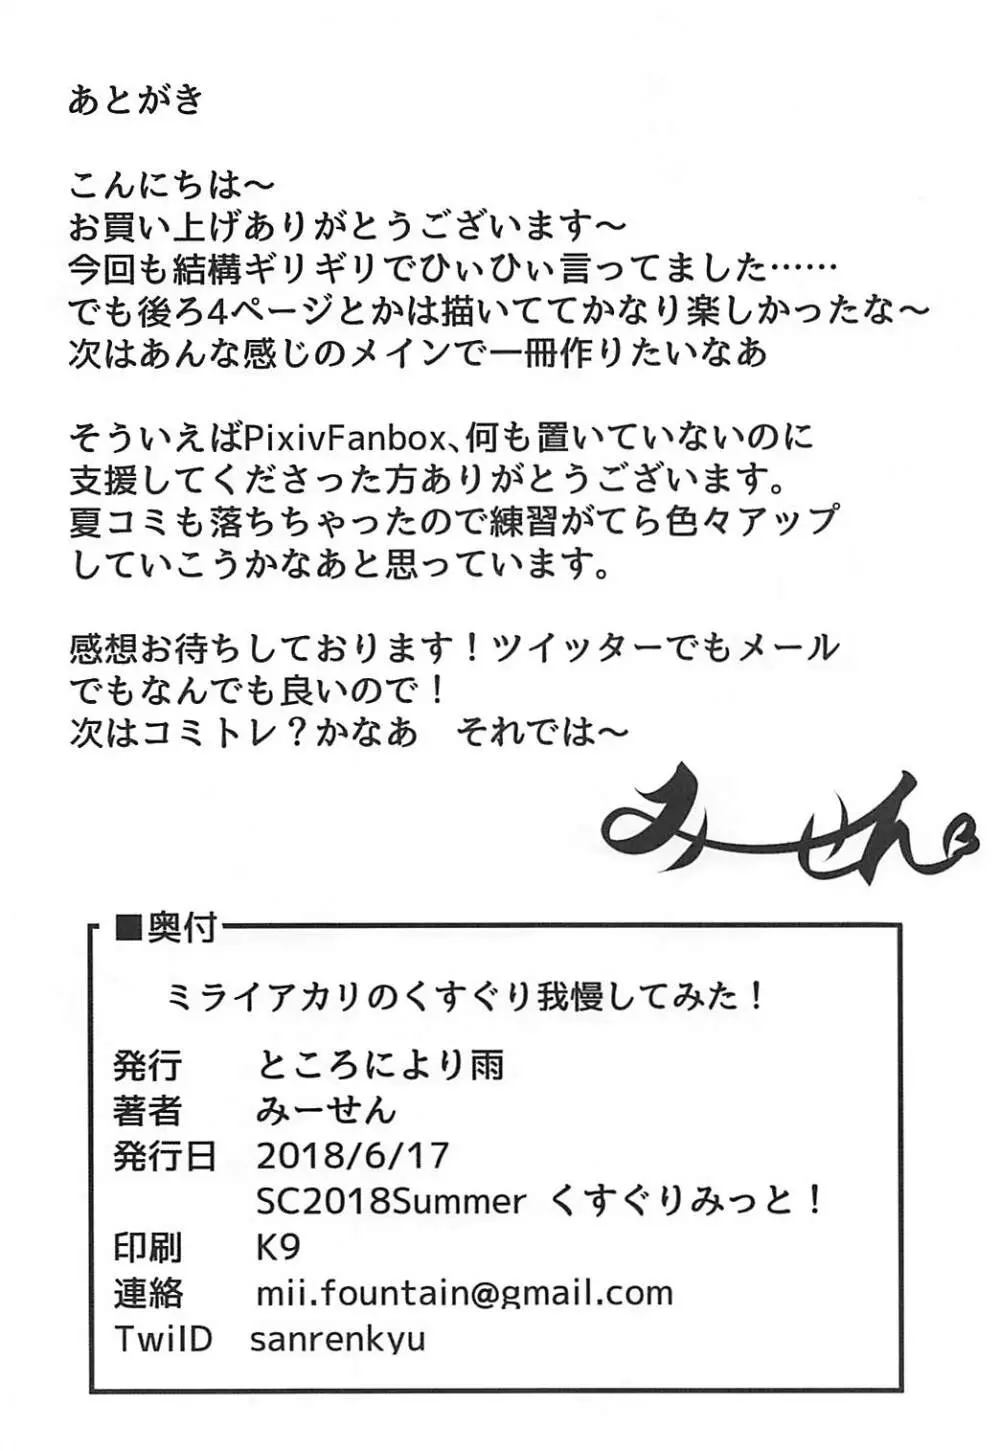 あとがき
こんにちは〜
お買い上げありがとうございます〜
今回も結構ギリギリでひぃひぃ言ってました……
でも後ろ4ページとかは描いててかなり楽しかったな〜
次はあんな感じのメインで一冊作りたいなあ
そういえばPixivFanbox、何も置いていないのに
支援してくださった方ありがとうございます。
夏コミも落ちちゃったので練習がてら色々アップ
していこうかなあと思っています。
感想お待ちしております！ツイッターでもメール
でもなんでも良いので！
次はコミトレ？かなあ　それでは〜
みーせん
■奥付
ミライアカリのくすぐり我慢してみた！
発行　ところにより雨
著者　みーせん
発行日　2018/6/17
SC2018Summer くすぐりみっと！
印刷　K9
連絡　mii.fountain@gmail.com
TwiID　sanrenkyu